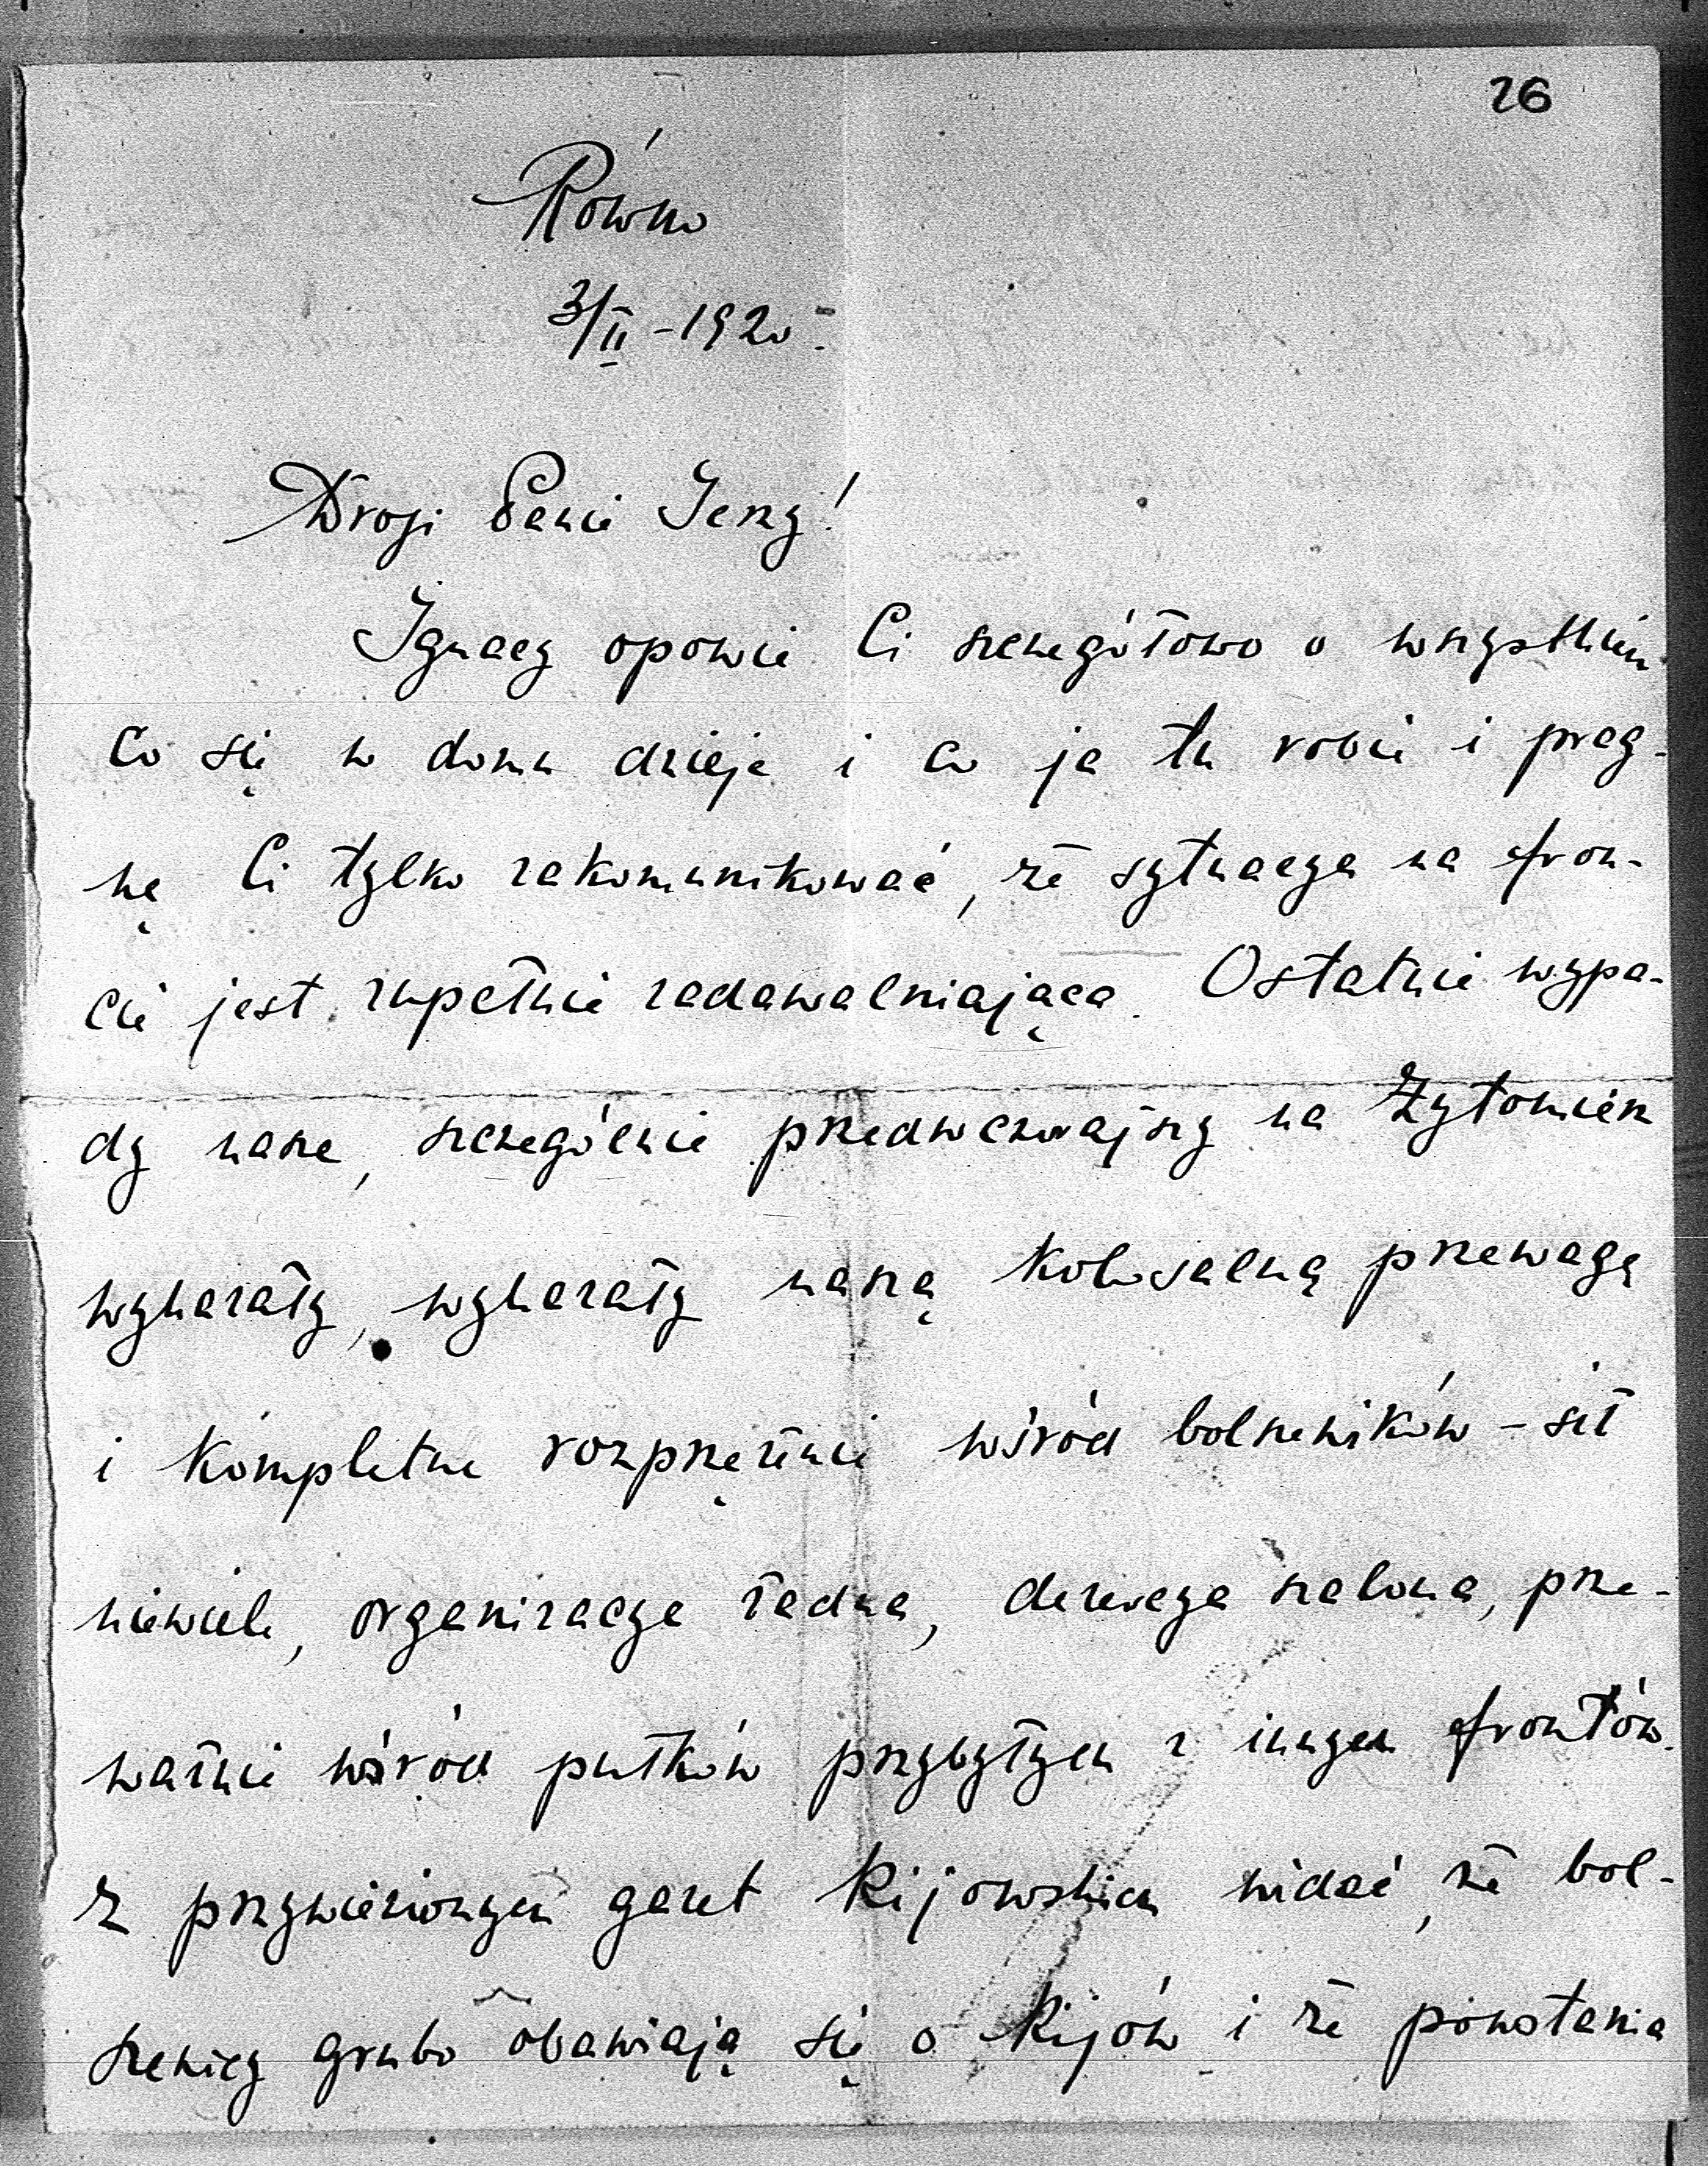 26
Równo
3/II - 1920.
Drogi Panie Jerzy!
Ignacy opowie Ci szczegółowo o wszystkiem
co się w domu dzieje i co ja tu robię i prag-
nę Ci tylko zakomunikować, że sytuacya na fron-
cie jest zupełnie zadawalniająca. Ostatnie wypa-
dy nasze, szczególnie przedwczorajszy na Żytomierz
wykazały, wykazały naszą kolosalną przewagę
i kompletne rozprzężenie wśród bolszewików - sił
niewiele, organizacya żadna, dezercya szalona, prze-
ważnie wśród pułków przybyłych z innych frontów.
Z przywiezionych gazet Kijowskich widać, że bol-
szewicy grubo obawiają się o Kijów i że powstania